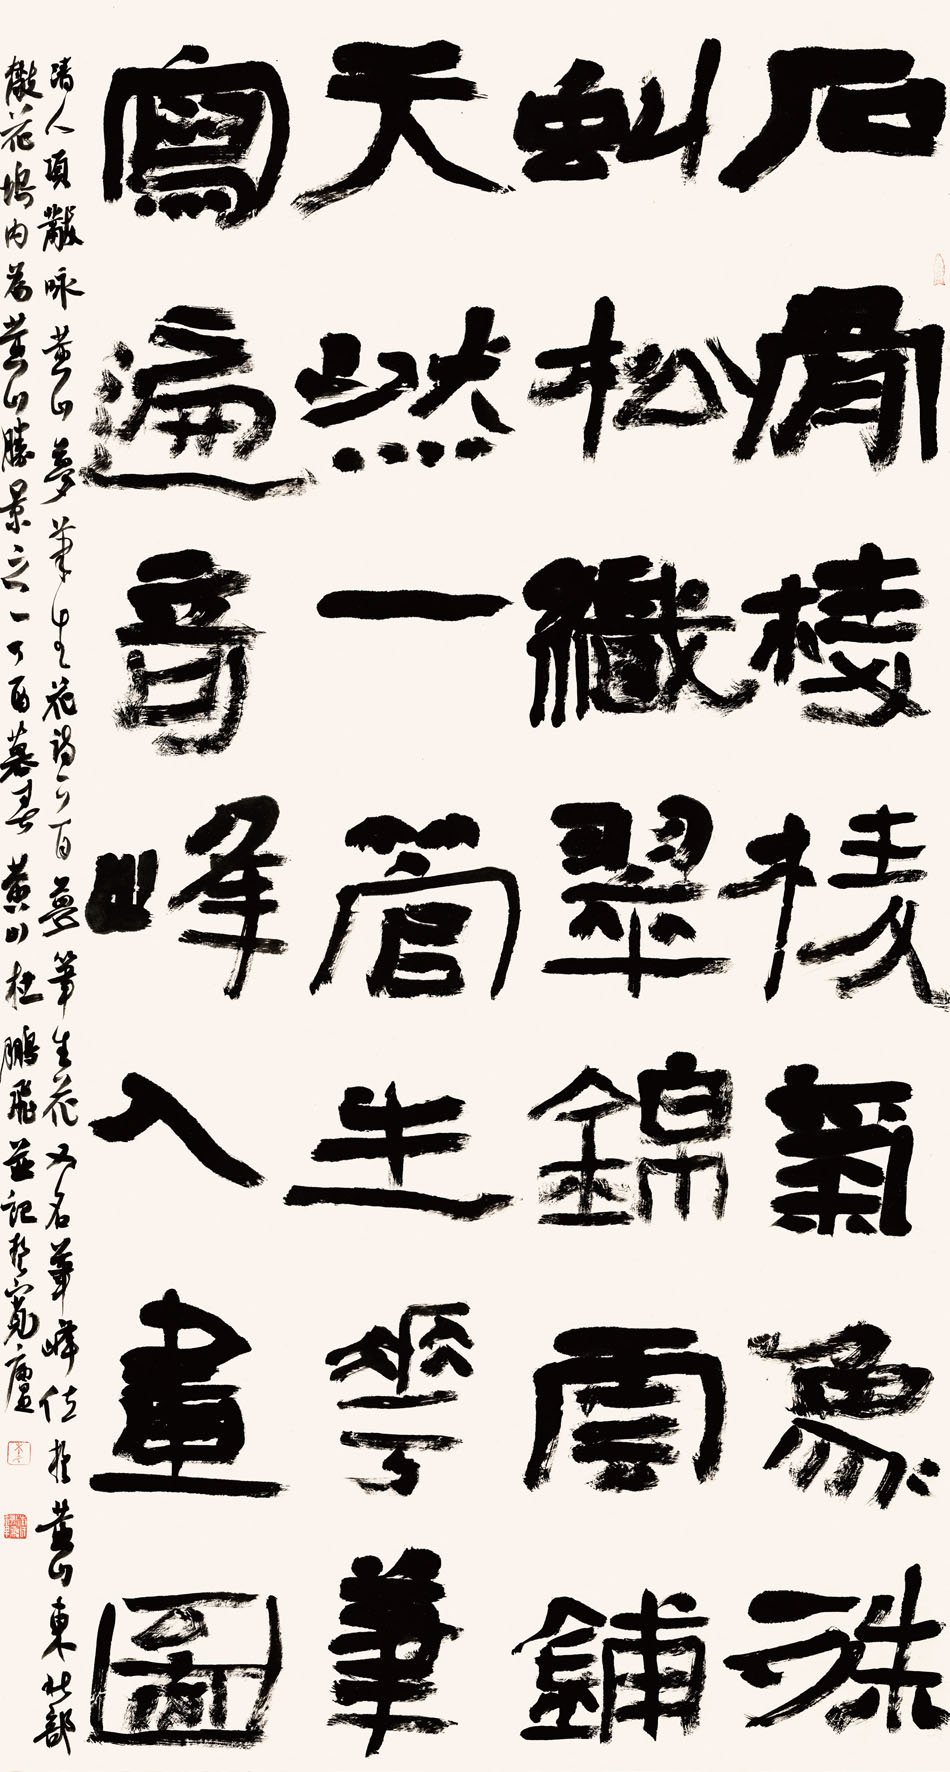 石骨棱棱氣象殊
虬松織翠錦雲鋪
天然一管生花筆
寫遍奇峰入畫圖
清人項黻咏黄山夢筆生花詩一首夢筆生花又名筆峰位於黄山東北部
散花塢内為黄山勝景之一丁酉暮春黄山杜鵬飛並記於寬廬